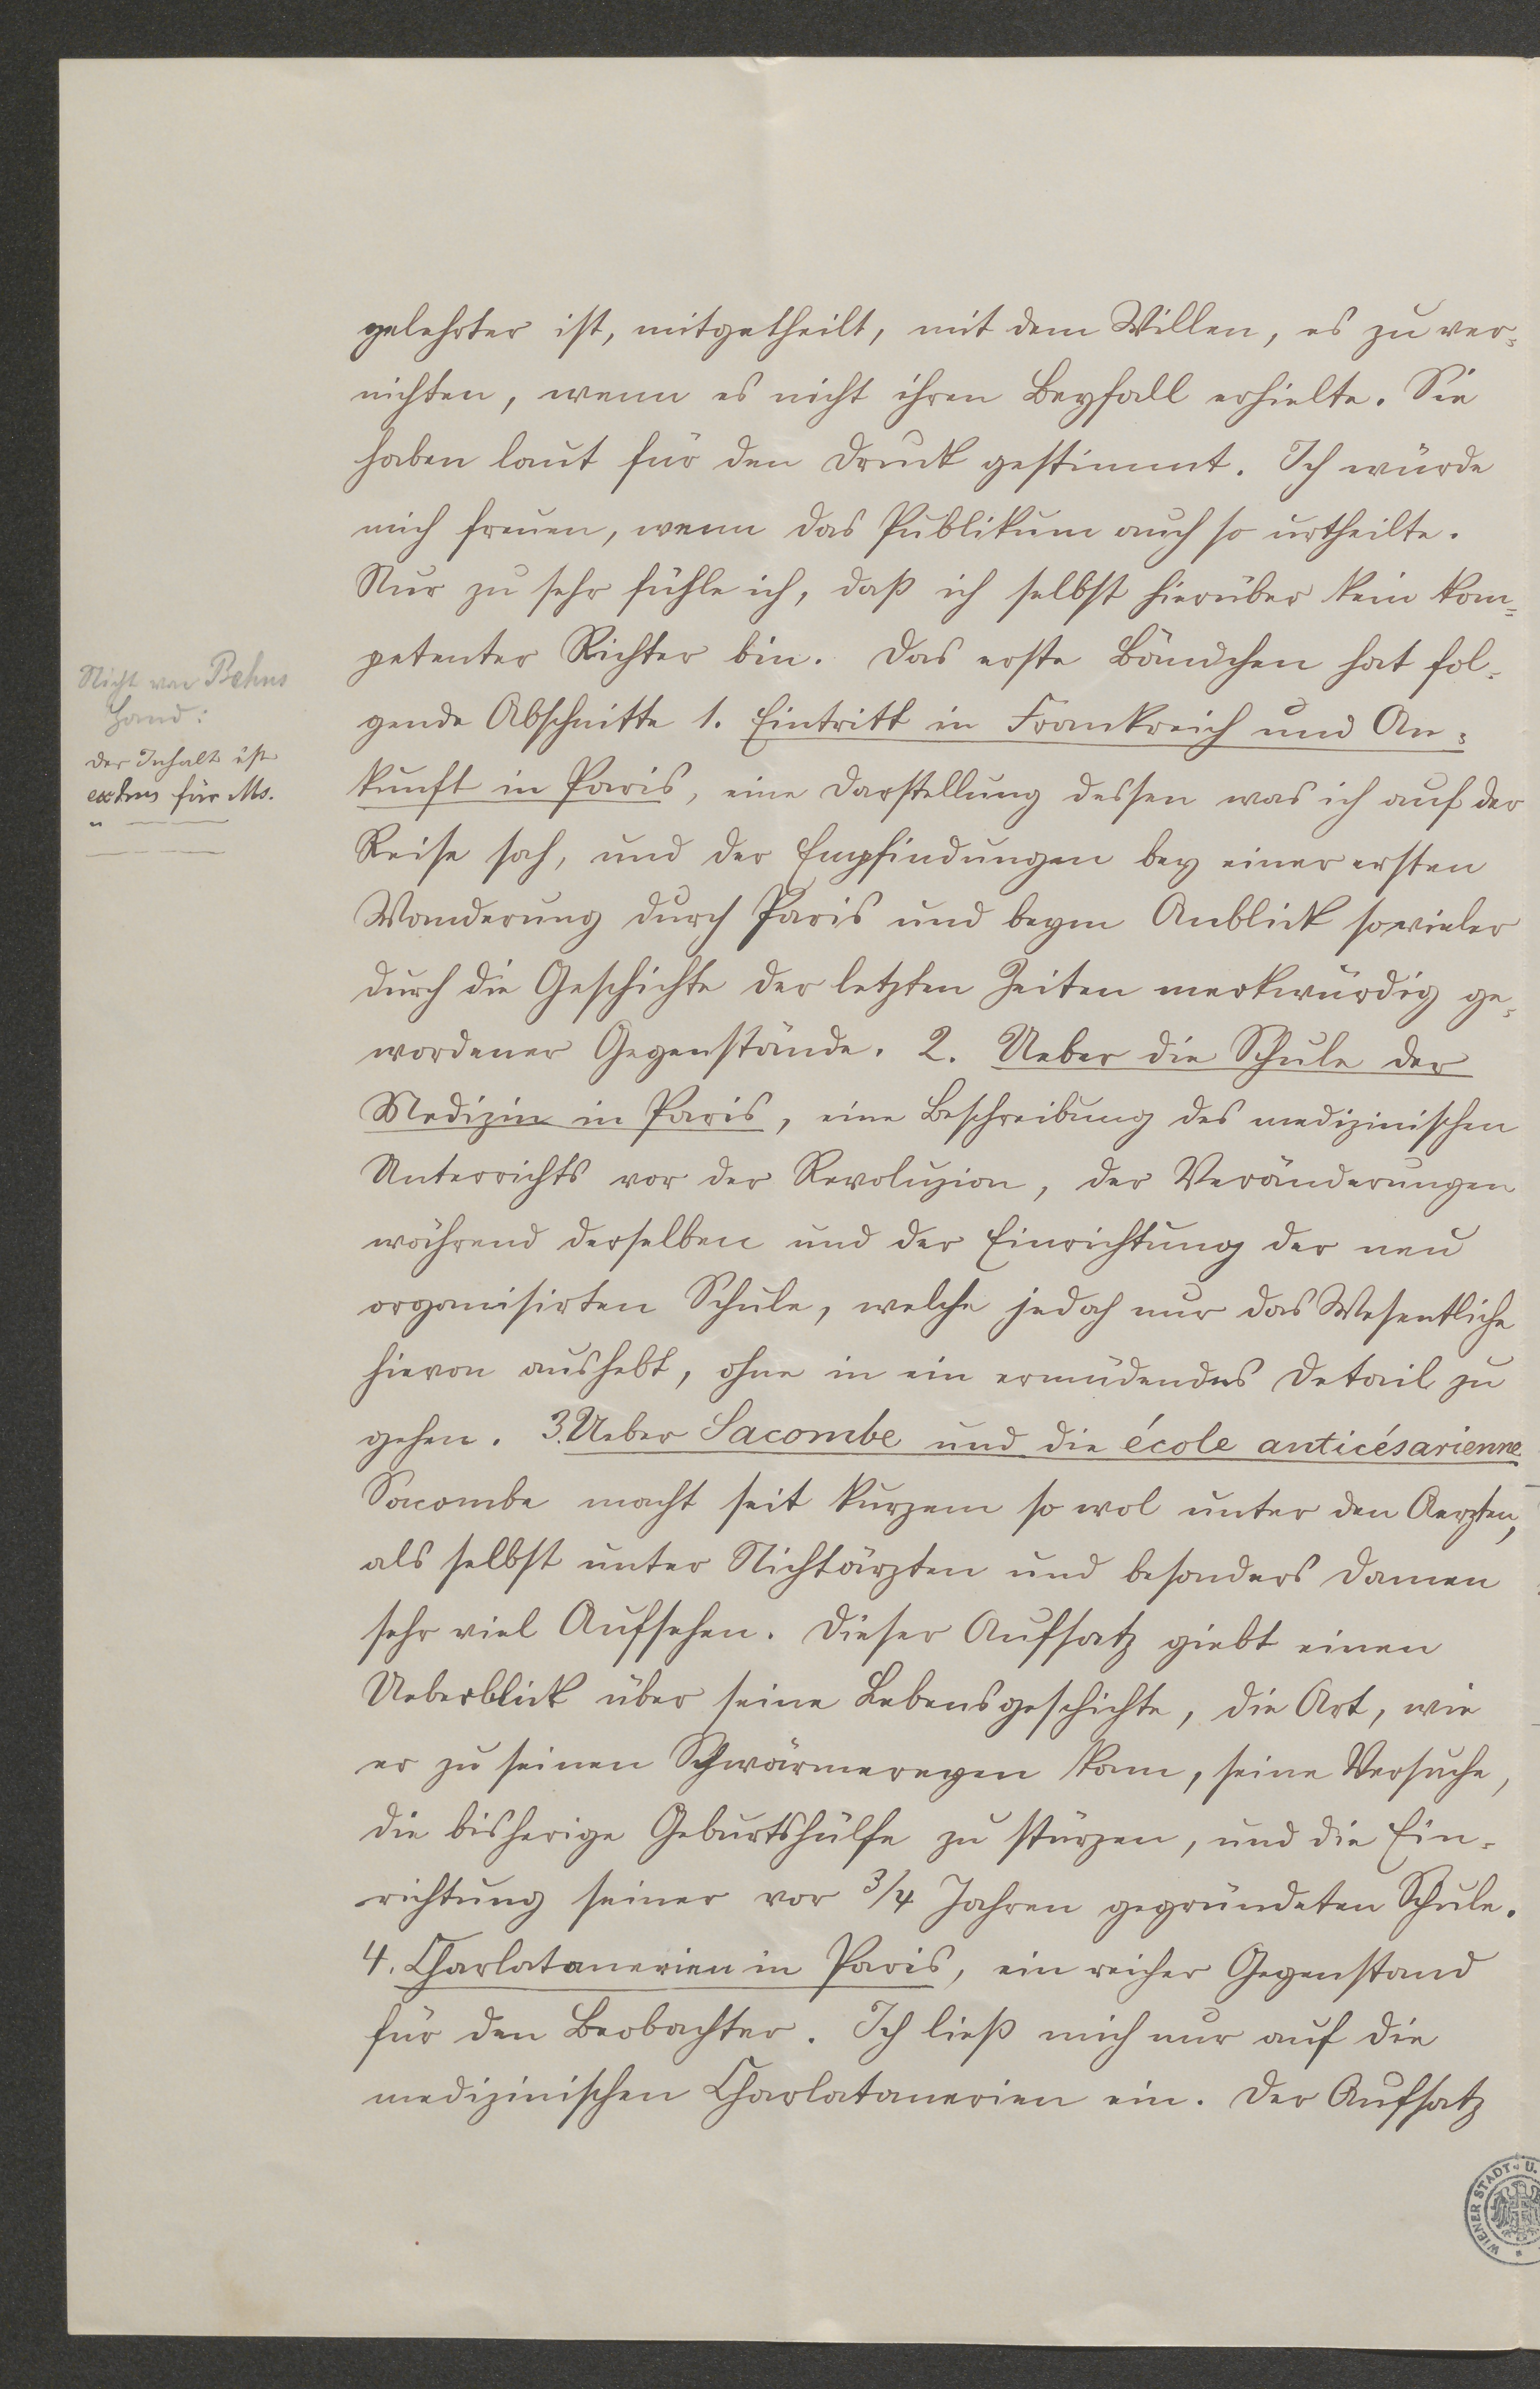 gelehrter ist, mitgetheilt, mit dem Willen, es zu ver=
nichten, wenn es nicht ihren Beyfall erhielte. Sie
haben laut für den Druck gestimmt. Ich würde
mich freuen, wenn das Publikum auch so urtheilte.
Nur zu sehr fühle ich, daß ich selbst hierüber kein kom=
petenter Richter bin. Das erste Bändchen hat fol=
gende Abschnitte 1. Eintritt in Frankreich und An=
kunft in Paris, eine Darstellung dessen was ich auf der
Reise sah, und der Empfindungen bey einer ersten
Wanderung durch Paris und beym Anblick so vieler
durch die Geschichte der letzten Zeiten merkwürdig ge=
wordener Gegenstände. 2. Ueber die Schule der
Medizin in Paris, eine Beschreibung des medizinischen
Unterrichts vor der Revoluzion, der Veränderungen
während derselben und der Einrichtung der neu
organisirten Schule, welche jedoch nur das Wesentliche
hievon aushebt, ohne in ein ermüdendes Detail zu
gehen. 3. Ueber Sacombe und die école anticésarienne.
Sacombe macht seit kurzem so wol unter den Aerzten,
als selbst unter Nichtärzten und besonders Damen
sehr viel Aufsehen. Dieser Aufsatz giebt einen
Ueberblick über seine Lebensgeschichte, die Art, wie
er zu seinen Schwärmereyen kam, seine Versuche,
die bisherige Geburtshülfe zu stürzen, und die Ein=
richtung seiner vor 3/4 Jahren gegründeten Schule.
4. Charlatanerien in Paris, ein reicher Gegenstand
für den Beobachter. Ich ließ mich nur auf die
medizinischen Charlatanerien ein. Der Aufsatz
Nicht von
Hand:
der Inhalt ist
für Ms.
WIENER STADT- U.